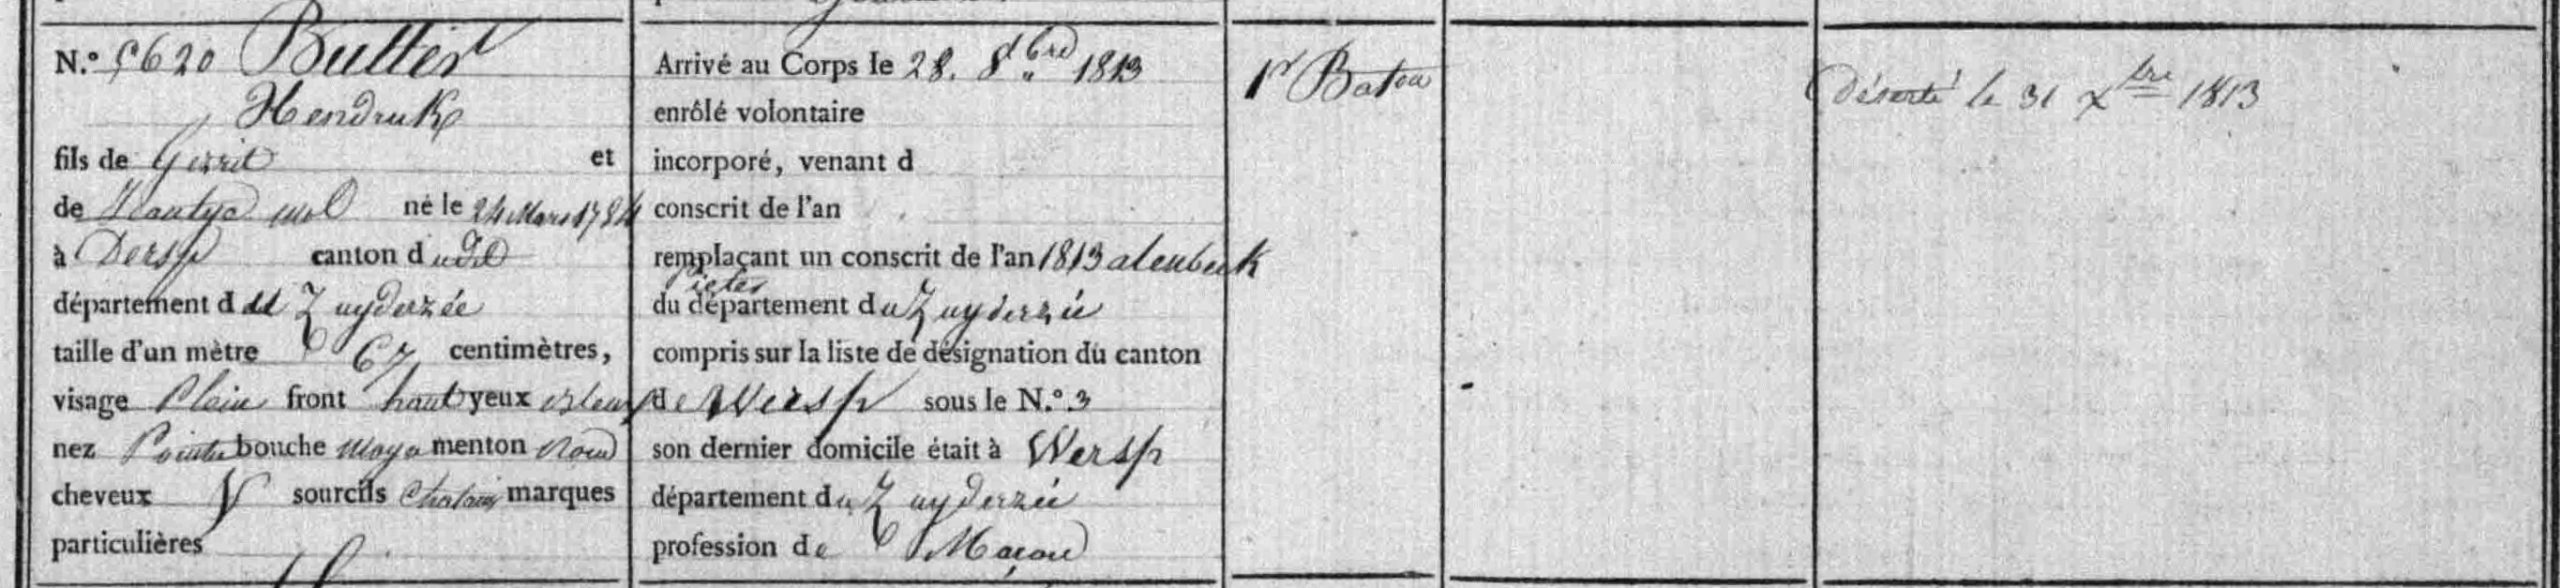 N.° 5620 Butter
Hendruk
fils de Gerrit et
de mol né le 24 Mars 1784
à Dersp canton d udel
département d du Zuyderzée
taille d'un mètre 67 centimètres,
visage Plein front haut yeux bleus
nez Pointu bouche Moye menton Rond
cheveux sourcils Chatain marques
particulières
Arrivé au Corps le 28. 8bre 1813
enrôlé volontaire
incorporé, venant d
conscrit de l'an
remplaçant un conscrit de l'an 1813
Pieter
du département du Zuyderzée
compris sur la liste de désignation du canton
de Wersp sous le N.° 3
son dernier domicile était à Wersp
département du Zuyderzée
profession de Maçon
1er Baton
Déserté le 31 Xbre 1813